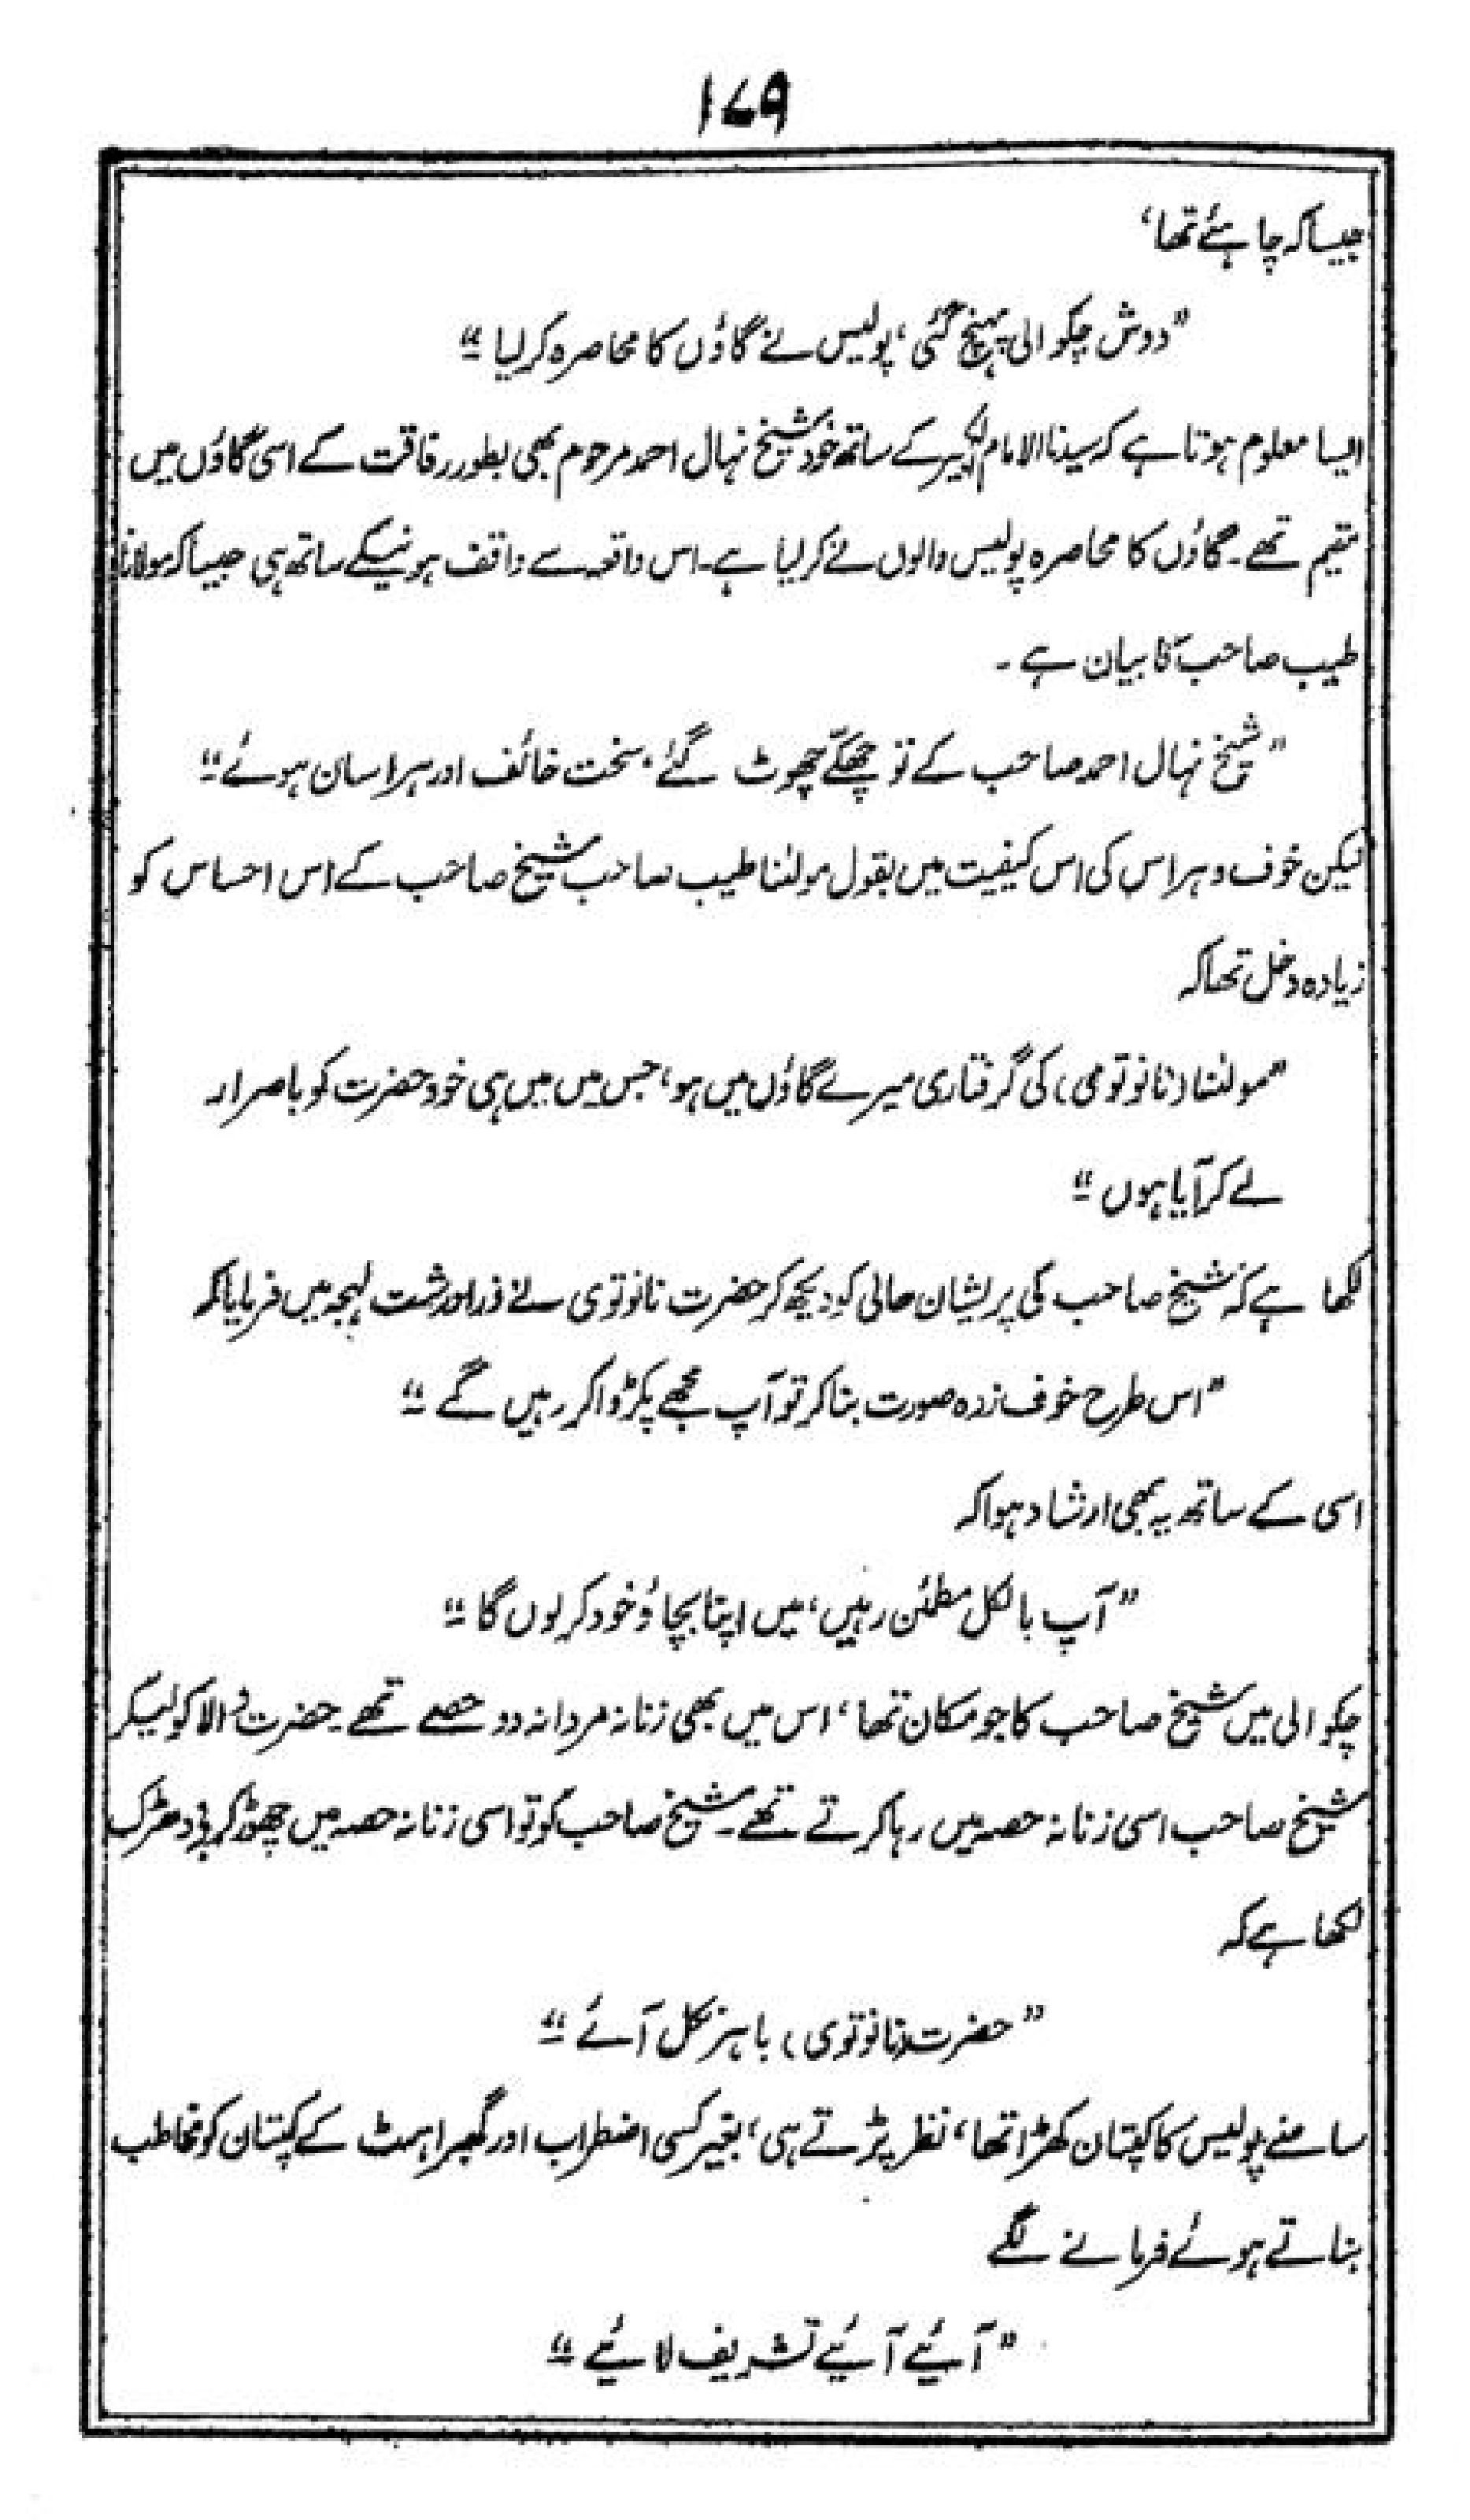 ۱۷۹
جیسا کہ چاہئے تھا،
"دوش چکوالی پہنچ گئی، پولیس نے گاؤں کا محاصرہ کر لیا"
ایسا معلوم ہوتا ہے کہ سیدنا الامام الکبیر کے ساتھ خود شیخ نہال احمد مرحوم بھی بطور رفاقت کے اسی گاؤں میں
مقیم تھے۔ گاؤں کا محاصرہ پولیس والوں نے کر لیا ہے۔ اس واقعہ سے واقف ہونیکے ساتھ ہی جیسا کہ مولانا
طیب صاحب کا بیان ہے۔
"شیخ نہال احمد صاحب کے تو چھکے چھوٹ گئے، سخت خائف اور ہراسان ہوئے"
لیکن خوف و ہراس کی اس کیفیت میں بقول مولٰنا طیب صاحب شیخ صاحب کے اس احساس کو
زیادہ دخل تھا کہ
"مولٰنا (نانوتوی) کی گرفتاری میرے گاؤں میں ہو، جس میں میں ہی خود حضرت کو باصرار
لے کر آیا ہوں"
لکھا ہے کہ شیخ صاحب کی پریشان حالی کو دیکھ کر حضرت نانوتوی نے ذرا درشت لہجہ میں فرمایا کہ
"اس طرح خوف زدہ صورت بنا کر تو آپ مجھے پکڑوا کر رہیں گے"
اسی کے ساتھ یہ بھی ارشاد ہوا کہ
"آپ بالکل مطمئن رہیں، میں اپنا بچاؤ خود کر لوں گا"
چکوالی میں شیخ صاحب کا جو مکان تھا، اس میں بھی زنانہ مردانہ دو حصے تھے۔ حضرت والا کو لیکر
شیخ صاحب اسی زنانہ حصہ میں رہا کرتے تھے۔ شیخ صاحب کو تو اسی زنانہ حصہ میں چھوڑ کر بے دھڑک
لکھا ہے کہ
"حضرت (نانوتوی) باہر نکل آئے"
سامنے پولیس کا کپتان کھڑا تھا، نظر پڑتے ہی، بغیر کسی اضطراب اور گھبراہٹ کے کپتان کو مخاطب
بناتے ہوئے فرمانے لگے
"آئیے آئیے تشریف لائیے"